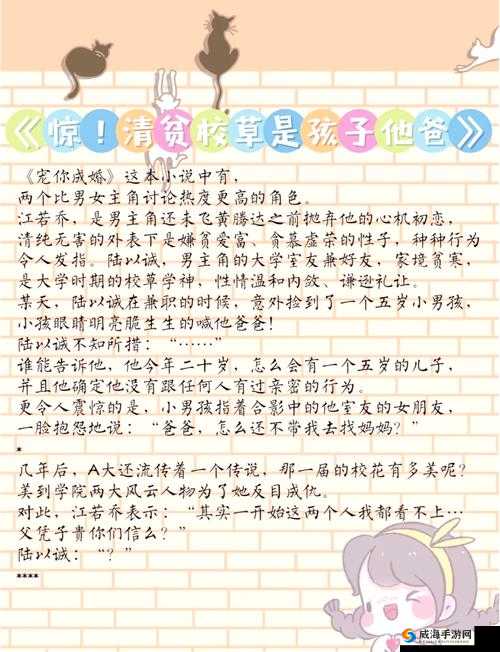 《惊！清贫校草是孩子他爸》
《宠你成婚》这本小说中有，
两个比男女主角讨论热度更高的角色。
江若乔，是男主角还未飞黄腾达之前抛弃他的心机初恋，
清纯无害的外表下是嫌贫爱富、贪慕虚荣的性子，种种行为
令人发指。陆以诚，男主角的大学室友兼好友，家境贫寒，
是大学时期的校草学神，性情温和内敛、谦逊礼让。
某天，陆以诚在兼职的时候，意外捡到了一个五岁小男孩，
小孩眼睛明亮脆生生的喊他爸爸！
陆以诚不知所措：“……”
谁能告诉他，他今年二十岁，怎么会有一个五岁的儿子，
并且他确定他没有跟任何人有过亲密的行为。
更令人震惊的是，小男孩指着合影中的他室友的女朋友，
一脸抱怨地说：“爸爸，怎么还不带我去找妈妈？”
*
几年后，A大还流传着一个传说，那一届的校花有多美呢？
美到学院两大风云人物为了她反目成仇。
对此，江若乔表示：“其实一开始这两个人我都看不上…
父凭子贵你们信么？”
陆以诚：“？”
****
威海手游网